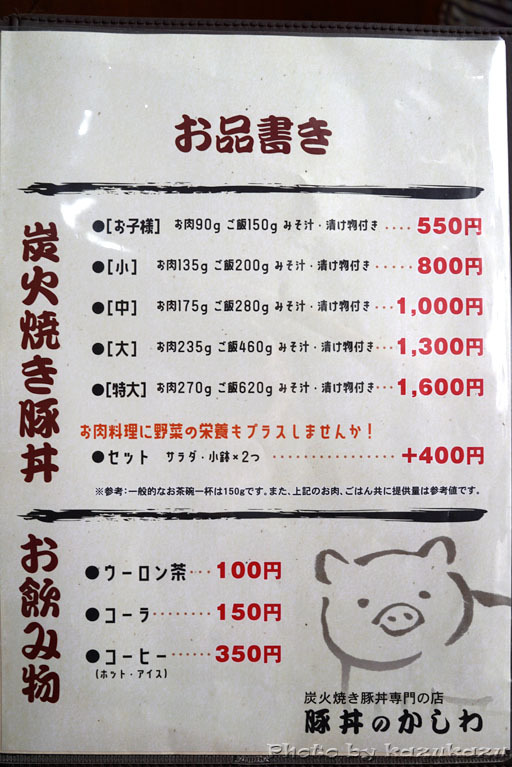 お品書き
炭火焼き豚丼
●[お子様] お肉90g ご飯150g みそ汁・漬け物付き ････ 550円
●[小] お肉135g ご飯200g みそ汁・漬け物付き ･････ 800円
●[中] お肉175g ご飯280g みそ汁・漬け物付き ･･･ 1,000円
●[大] お肉235g ご飯460g みそ汁・漬け物付き ･･･ 1,300円
●[特大] お肉270g ご飯620g みそ汁・漬け物付き ･･･ 1,600円
お肉料理に野菜の栄養もプラスしませんか！
●セット サラダ・小鉢×2つ ･････････････････ +400円
※参考：一般的なお茶碗一杯は150gです。また、上記のお肉、ごはん共に提供量は参考値です。
お飲み物
●ウーロン茶 ･･･ 100円
●コーラ ･･･････ 150円
●コーヒー ･････ 350円
(ホット・アイス)
炭火焼き豚丼専門の店
豚丼のかしわ
Photo by kazukazu